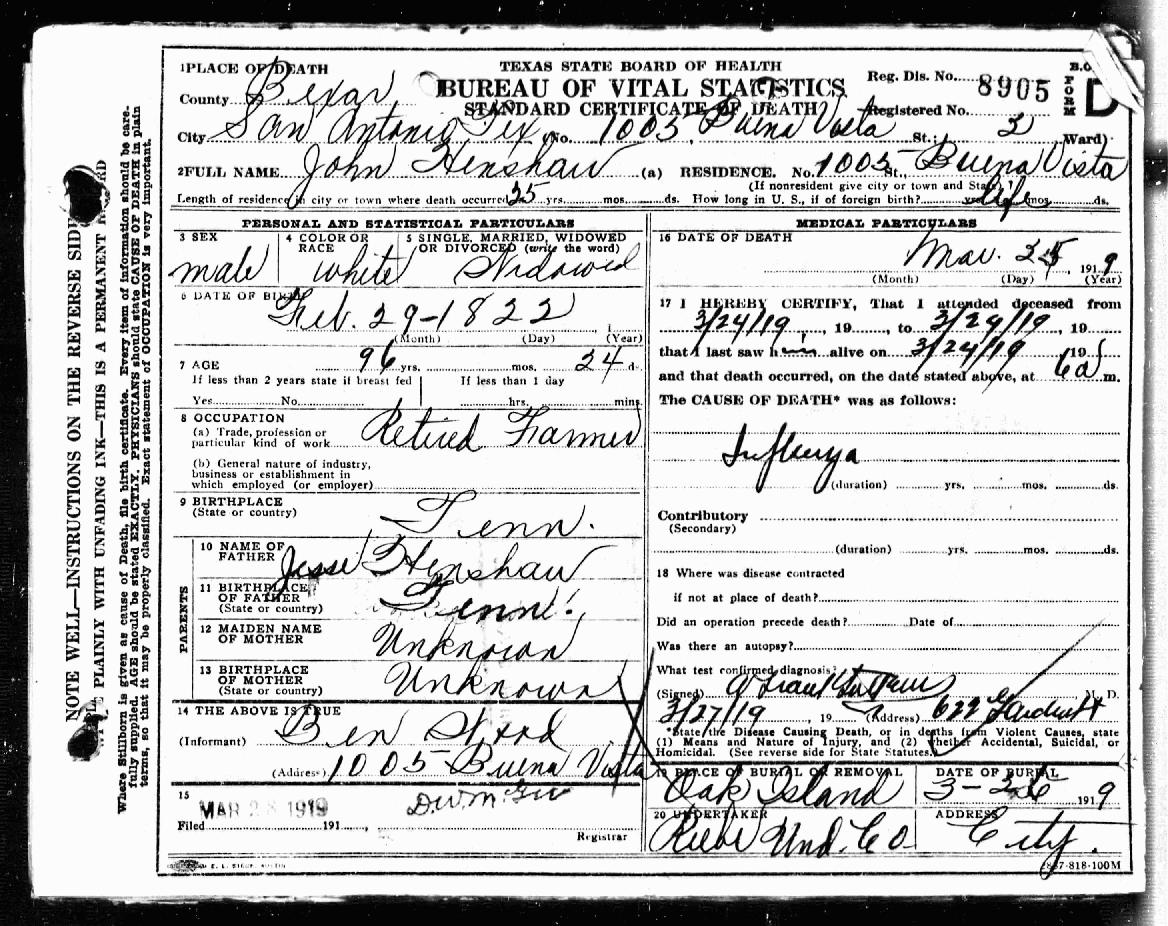 TEXAS STATE BOARD OF HEALTH
BUREAU OF VITAL STATISTICS
STANDARD CERTIFICATE OF DEATH
Reg. Dis. No. 8905
Registered No.
B.O.
FORM D
1 PLACE OF DEATH
County Bexar
City San Antonio Tex (No. 1005 Buena Vista St.; 3 Ward)
2 FULL NAME John Henshaw (a) RESIDENCE. No. 1005 St., Buena Vista
(If nonresident give city or town and State)
Length of residence in city or town where death occurred 35 yrs. mos. ds. How long in U. S., if of foreign birth? yrs. life mos. ds.
PERSONAL AND STATISTICAL PARTICULARS
3 SEX male
4 COLOR OR RACE white
5 SINGLE, MARRIED, WIDOWED OR DIVORCED (write the word) Widowed
6 DATE OF BIRTH Feb. 29-1822
(Month) (Day) (Year)
7 AGE 96 yrs. mos. 24 d.
If less than 2 years state if breast fed If less than 1 day
Yes No. hrs. mins.
8 OCCUPATION
(a) Trade, profession or particular kind of work Retired Farmer
(b) General nature of industry,
business or establishment in
which employed (or employer)
9 BIRTHPLACE
(State or country) Tenn.
PARENTS
10 NAME OF FATHER Jesse Henshaw
11 BIRTHPLACE OF FATHER
(State or country) Tenn.
12 MAIDEN NAME OF MOTHER Unknown
13 BIRTHPLACE OF MOTHER
(State or country) Unknown
14 THE ABOVE IS TRUE
(Informant) Ben
(Address) 1005 Buena Vista
15
Filed MAR 28 1919 191 ,
Registrar
MEDICAL PARTICULARS
16 DATE OF DEATH Mar. 25 1919
(Month) (Day) (Year)
17 I HEREBY CERTIFY, That I attended deceased from
3/24/19, 19, to 3/24/19, 19
that I last saw him alive on 3/24/19 19
and that death occurred, on the date stated above, at 6a m.
The CAUSE OF DEATH* was as follows:
Influenza
(duration) yrs. mos. ds.
Contributory
(Secondary)
(duration) yrs. mos. ds.
18 Where was disease contracted
if not at place of death?
Did an operation precede death? Date of
Was there an autopsy?
What test confirmed diagnosis?
(Signed) M. D.
3/27/19, 19 (Address) 622
*State the Disease Causing Death, or in deaths from Violent Causes, state
(1) Means and Nature of Injury, and (2) whether Accidental, Suicidal, or
Homicidal. (See reverse side for State Statutes.)
19 PLACE OF BURIAL OR REMOVAL Oak Island
DATE OF BURIAL 3-26 1919
20 UNDERTAKER Riebe Und. Co
ADDRESS City.
-818-100M
NOTE WELL—INSTRUCTIONS ON THE REVERSE SIDE
PLAINLY WITH UNFADING INK—THIS IS A PERMANENT
Where Stillborn is given as cause of Death, file birth certificate. Every item of information should be care-
fully supplied. AGE should be stated EXACTLY. PHYSICIANS should state CAUSE OF DEATH in plain
terms, so that it may be properly classified. Exact statement of OCCUPATION is very important.